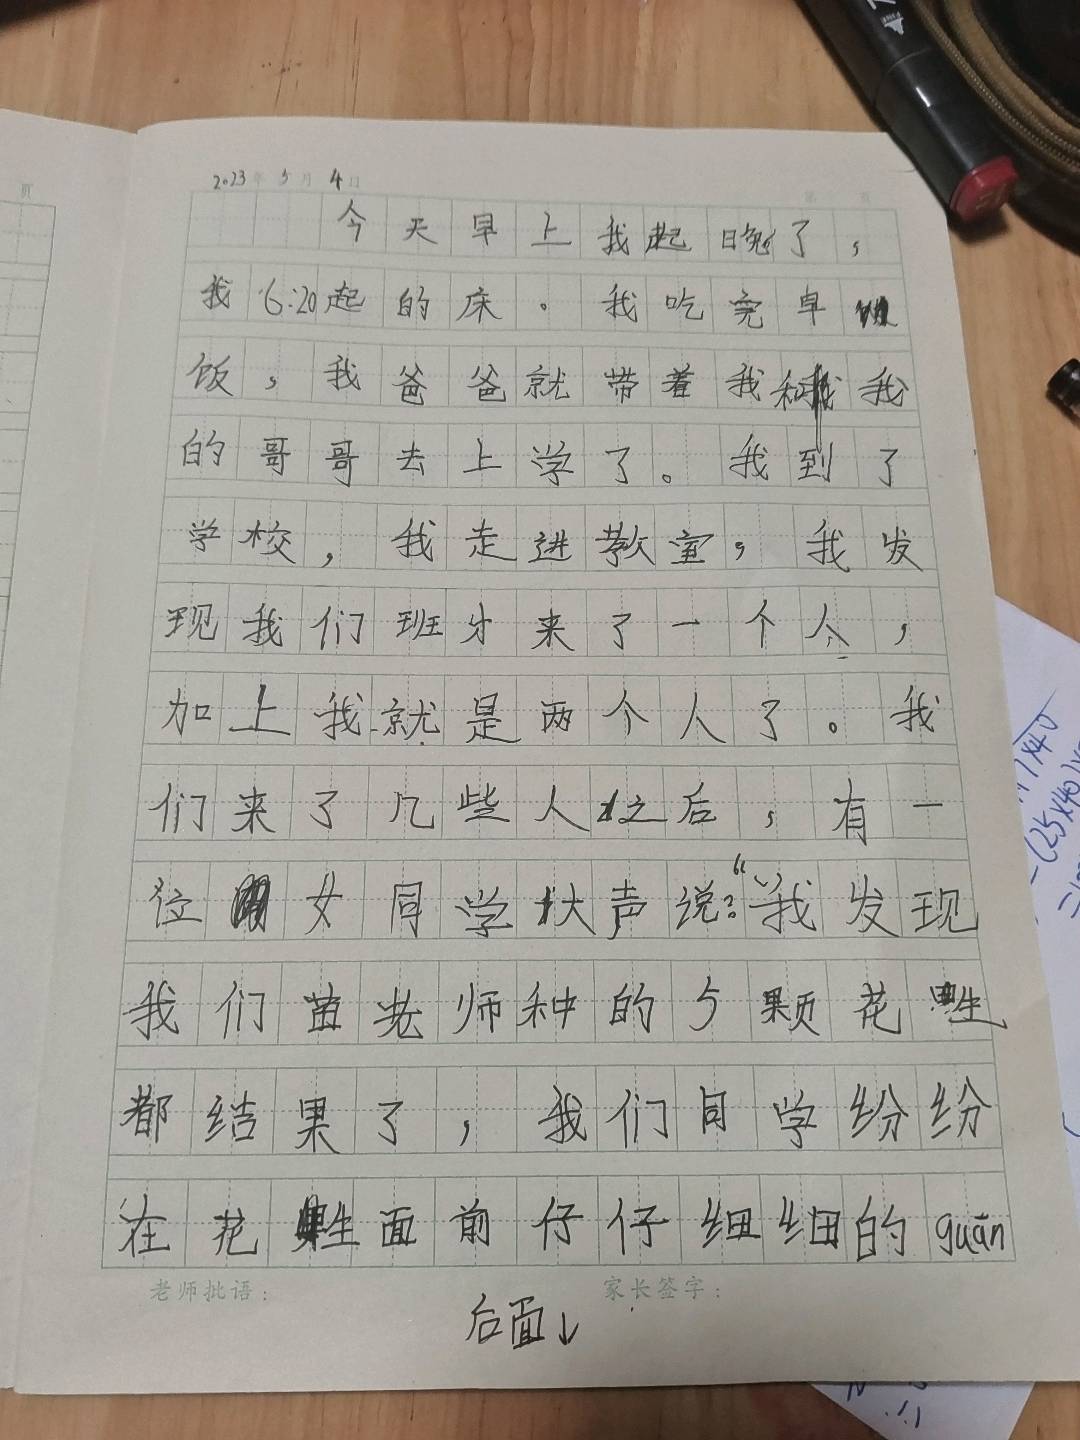 2023年5月4日
今天早上我起晚了，
我6:20起的床。我吃完早
饭，我爸爸就带着我和我
的哥哥去上学了。我到了
学校，我走进教室，我发
现我们班才来了一个人，
加上我就是两个人了。我
们来了几些人之后，有一
位女同学大声说：“我发现
我们苗老师种的5颗花生
都结果了，我们同学纷纷
在花生面前仔仔细细的guān
老师批语：
家长签字：
后面↓